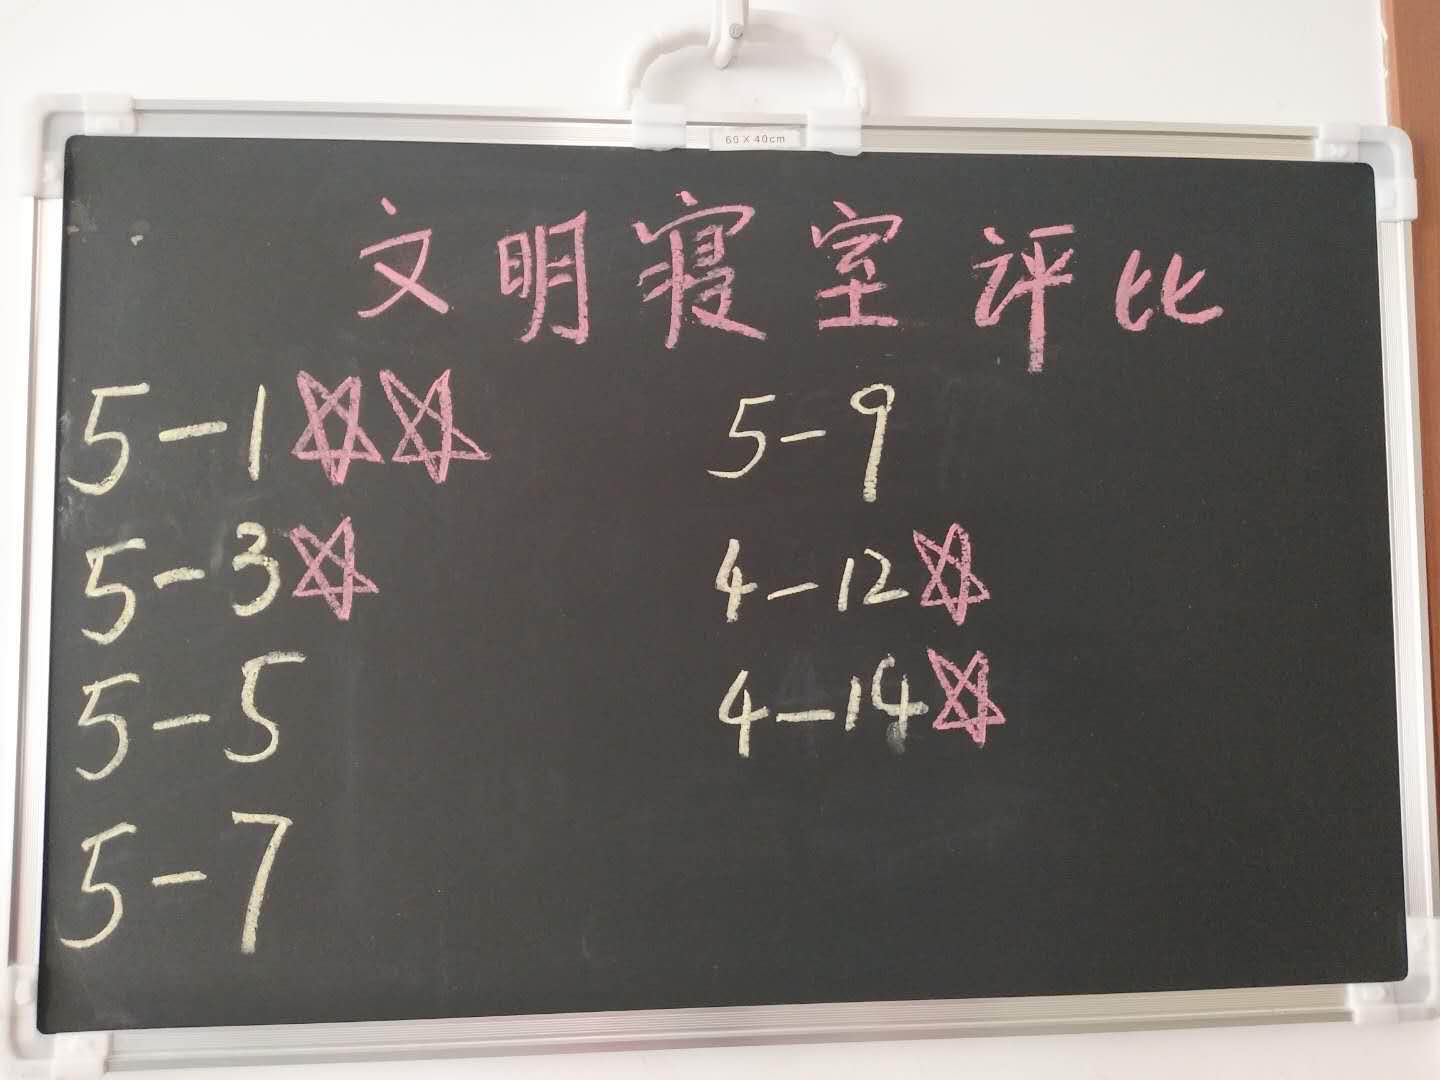 60×40cm
文明寝室评比
5-1☆☆
5-3☆
5-5
5-7
5-9
4-12☆
4-14☆